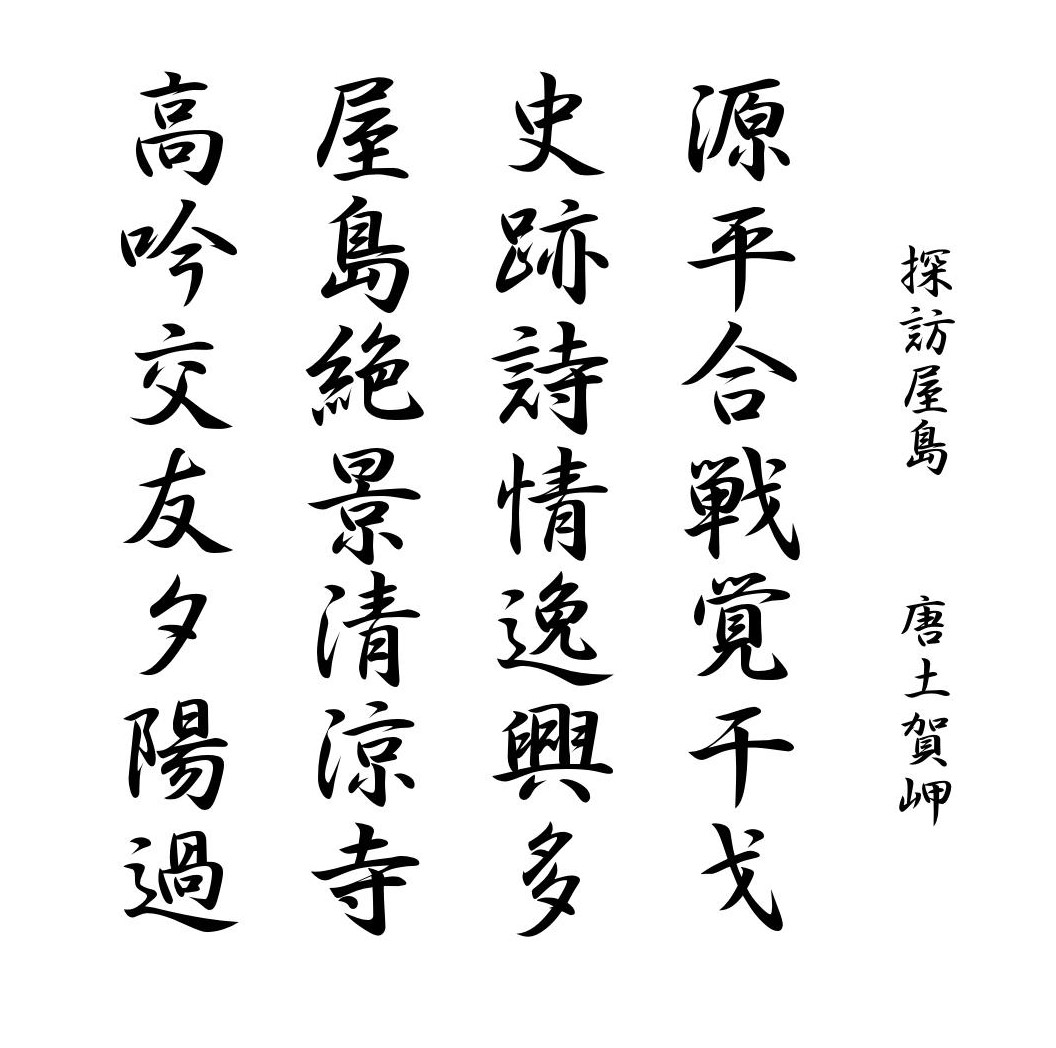 探訪屋島　唐土賀岬
源平合戦覚干戈
史跡詩情逸興多
屋島絶景清涼寺
高吟交友夕陽過